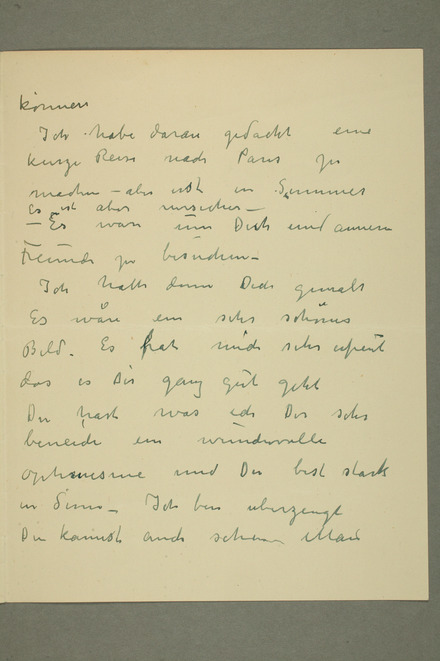 können
Ich habe daran gedacht eine
kurze Reise nach Paris zu
machen – aber erst im Sommer
Es ist aber unsicher –
– Es wäre um Dich und annere
Freunde zu besuchen –
Ich hätte dann Dich gemalt
Es wäre ein sehr schönes
Bild. Es hat mich sehr efreut
das es Dir ganz gut geht
Du hast was ich Dir sehr
beneide ein wundervolle
optimisme und Du bist stark
in Sinn – Ich bin uberzeugt
Du kannst auch schwer